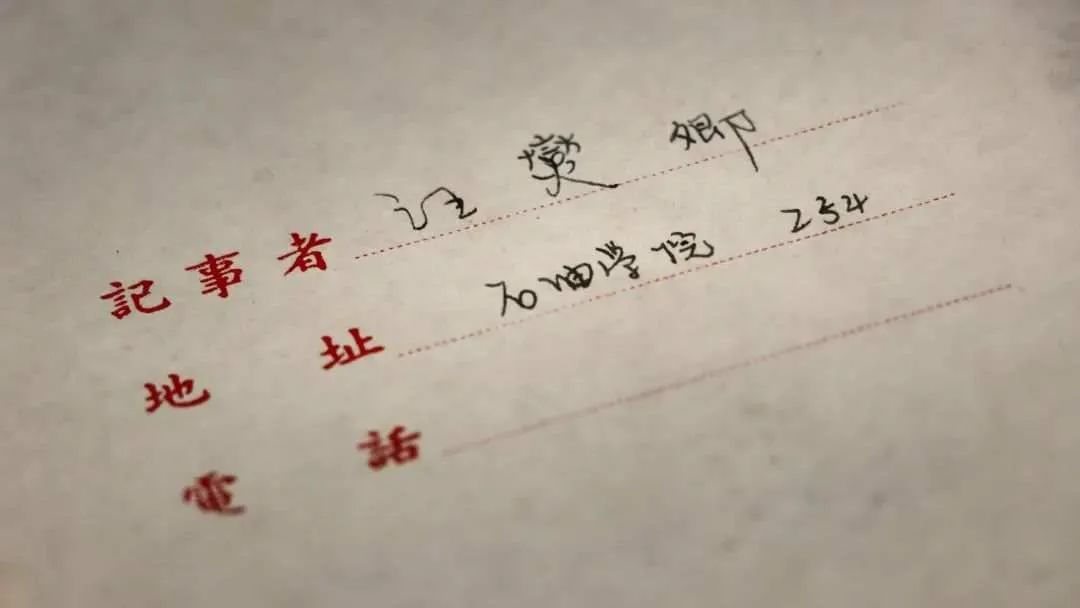 記事者 汪燮卿
地址 石油学院 254
電話